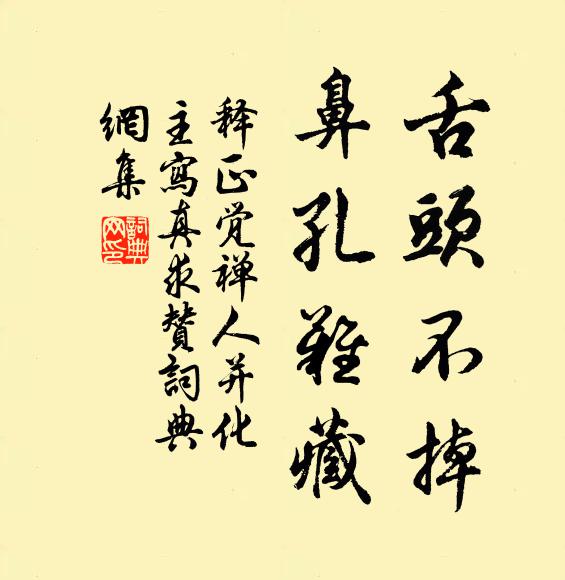 舌頭不掉
鼻孔難藏
释正觉禅人并化
主寫真求贊詞典
網集
詞典网印